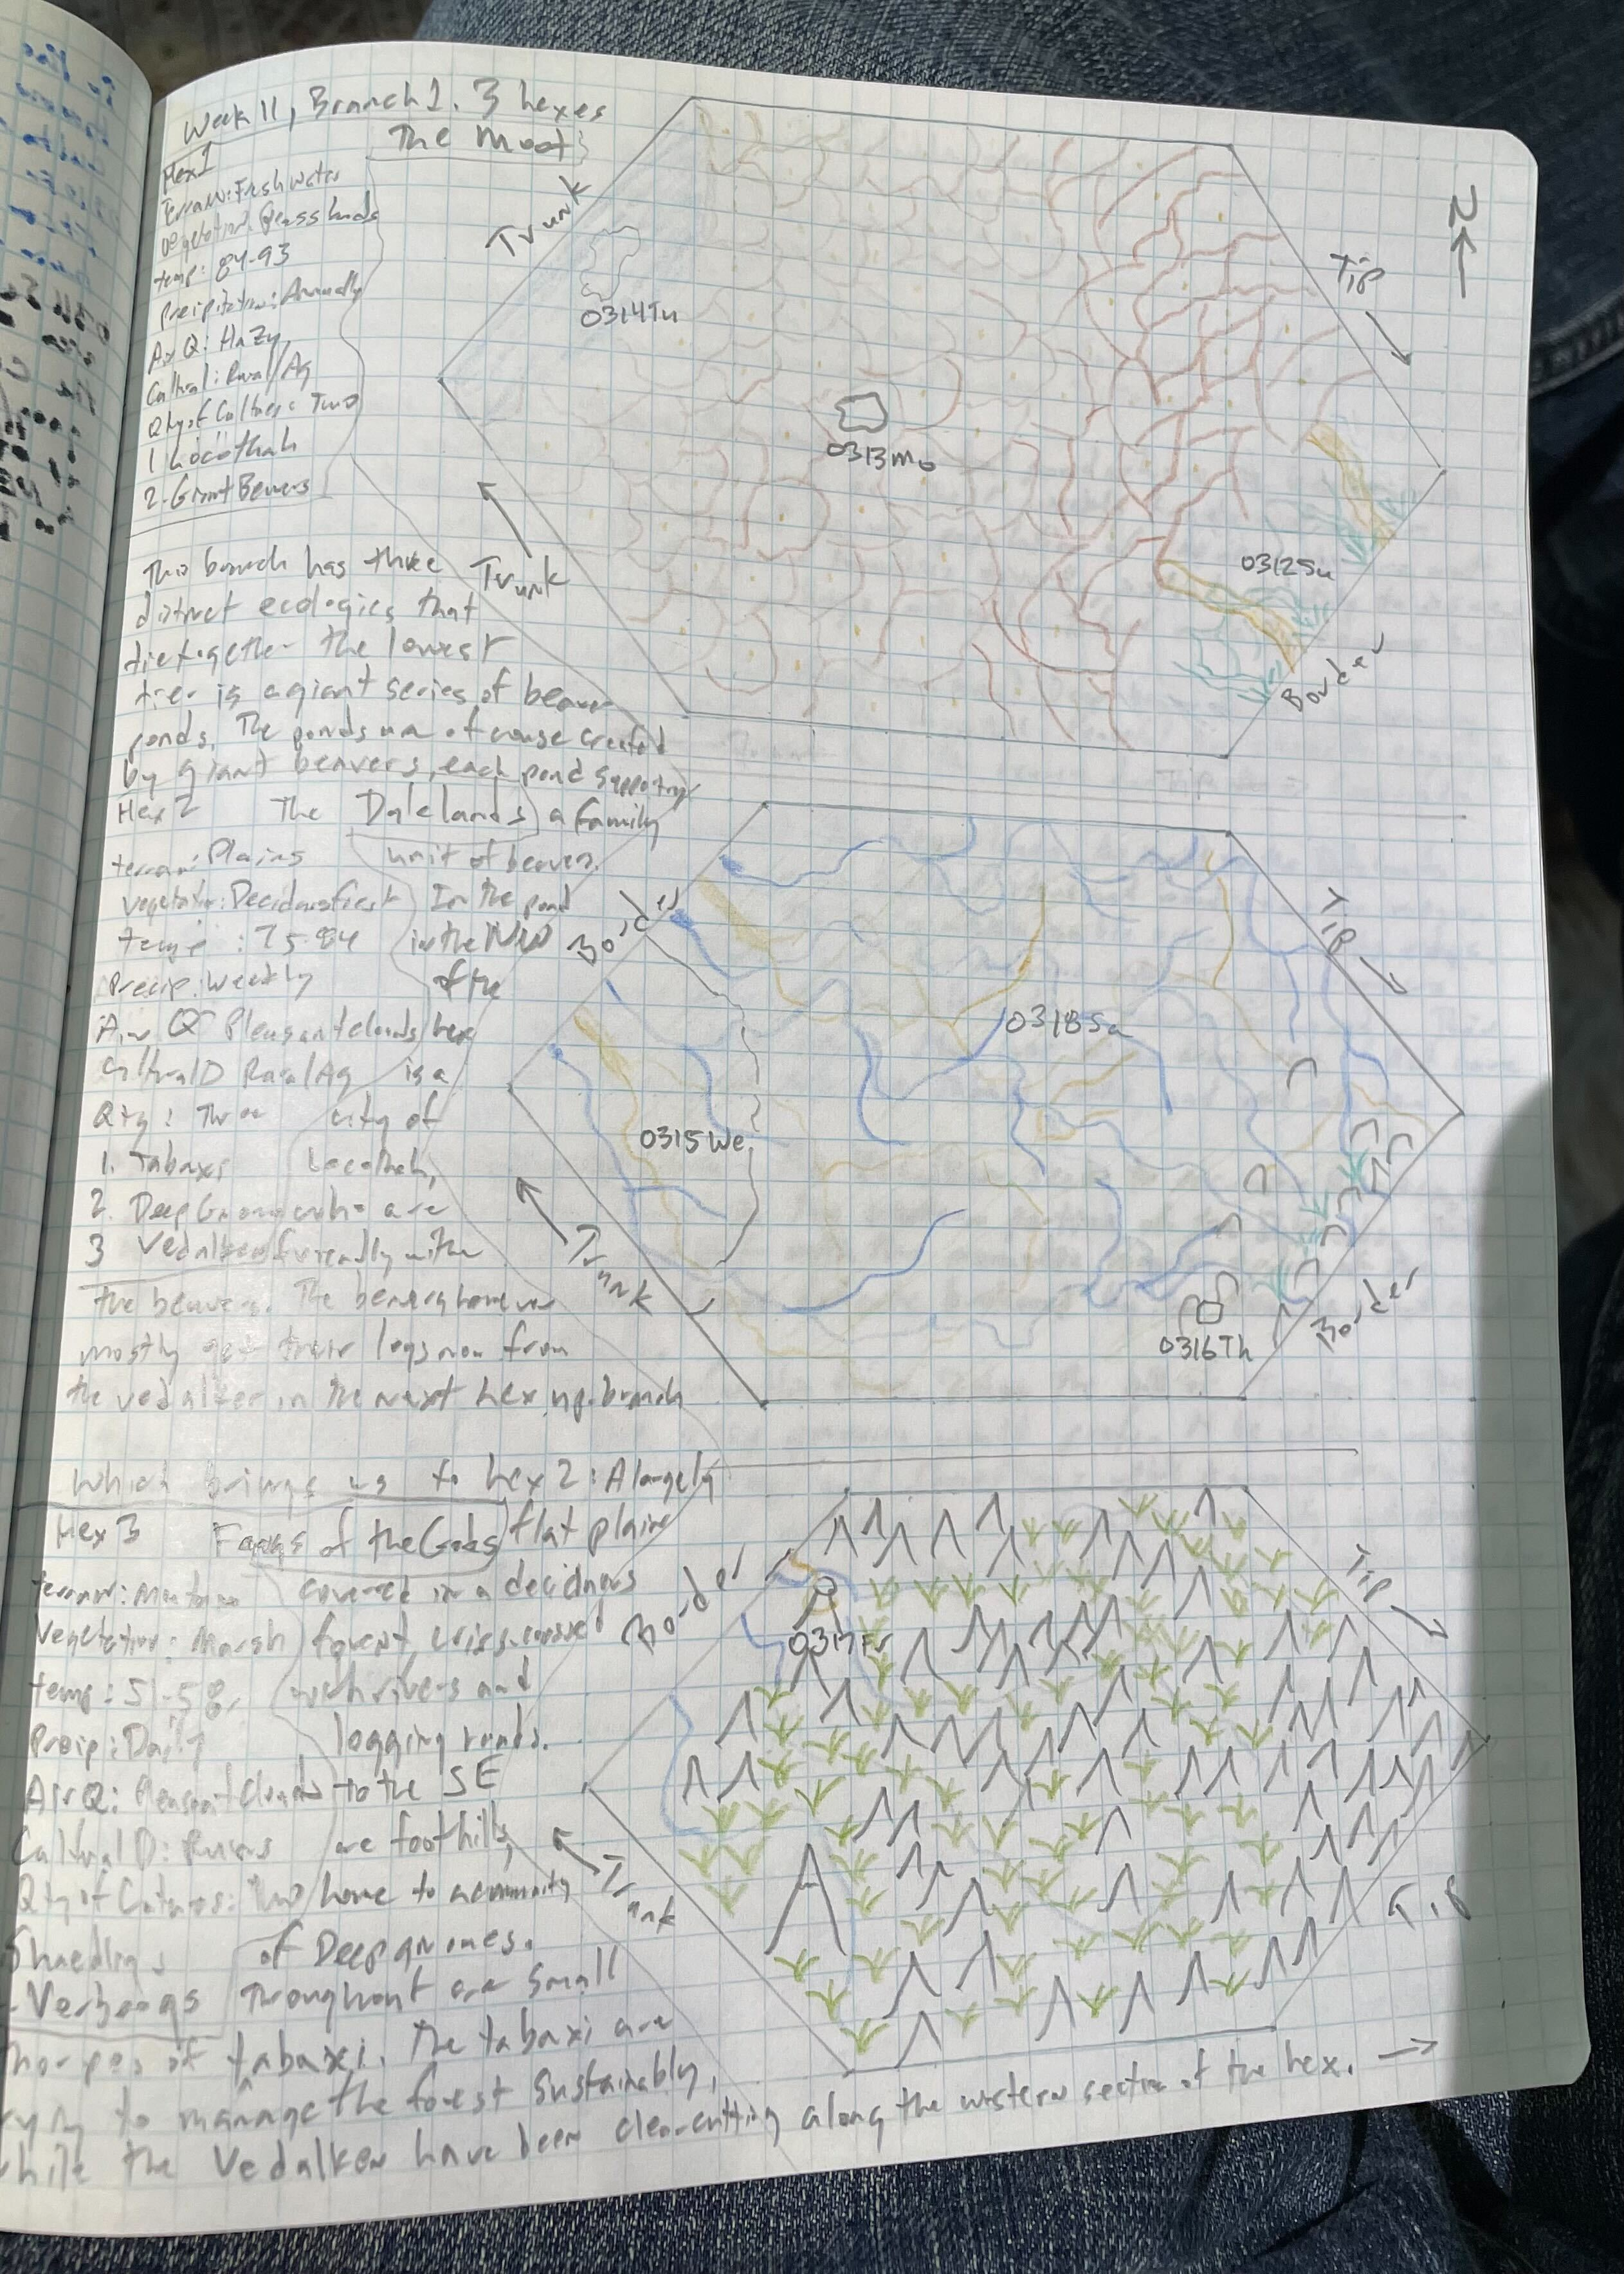 Week 11, Branch 1. 3 hexes
Hex 1
The Moot
Terrain: Fresh Water
Vegetation: Grasslands
temp: 84-93
Precipitation: Annually
Air Q: Hazy
Cultural: Rural/Ag
Qty of Cultures: Two
1 Locothah
2-Giant Beavers
This branch has three
distinct ecologies that
tie together the lowest
tier is a giant series of beaver
ponds. The ponds are of course created
by giant beavers, each pond supporting
a family
unit of beavers.
In the pond
in the NW
of the
hex
is a
city of
Locothah,
who are
friendly with
the beavers. The beavers however
mostly get their logs now from
the vedalken in the next hex up-branch
Hex 2 The Dalelands
terrain: Plains
Vegetation: Deciduous forest
temp: 75-84
Precip: Weekly
Air Q Pleasant clouds
Cultural D Rural/Ag
Qty: Three
1. Tabaxi
2. Deep Gnomes
3 Vedalken
Which brings us to hex 2: A largely
flat plain
covered in a deciduous
forest, criss-crossed
with rivers and
logging roads.
to the SE
are foothills,
home to a community
of Deep gnomes.
Throughout are small
thorpes of tabaxi. The tabaxi are
trying to manage the forest sustainably,
while the Vedalken have been clear-cutting along the western section of the hex. →
Hex 3 Fangs of the Gods
terrain: Mountain
Vegetation: Marsh
temp: 51-58
Precip: Daily
Air Q: Pleasant Clouds
Cultural D: Ruins
Qty of Cultures: Two
Verbeegs
N
Trunk
Tip
0314Tu
0313Mo
0312Su
Trunk
Border
Border
Tip
0318Sa
0315We
Trunk
0316Th
Border
Border
Tip
0317Fr
Trunk
Tip